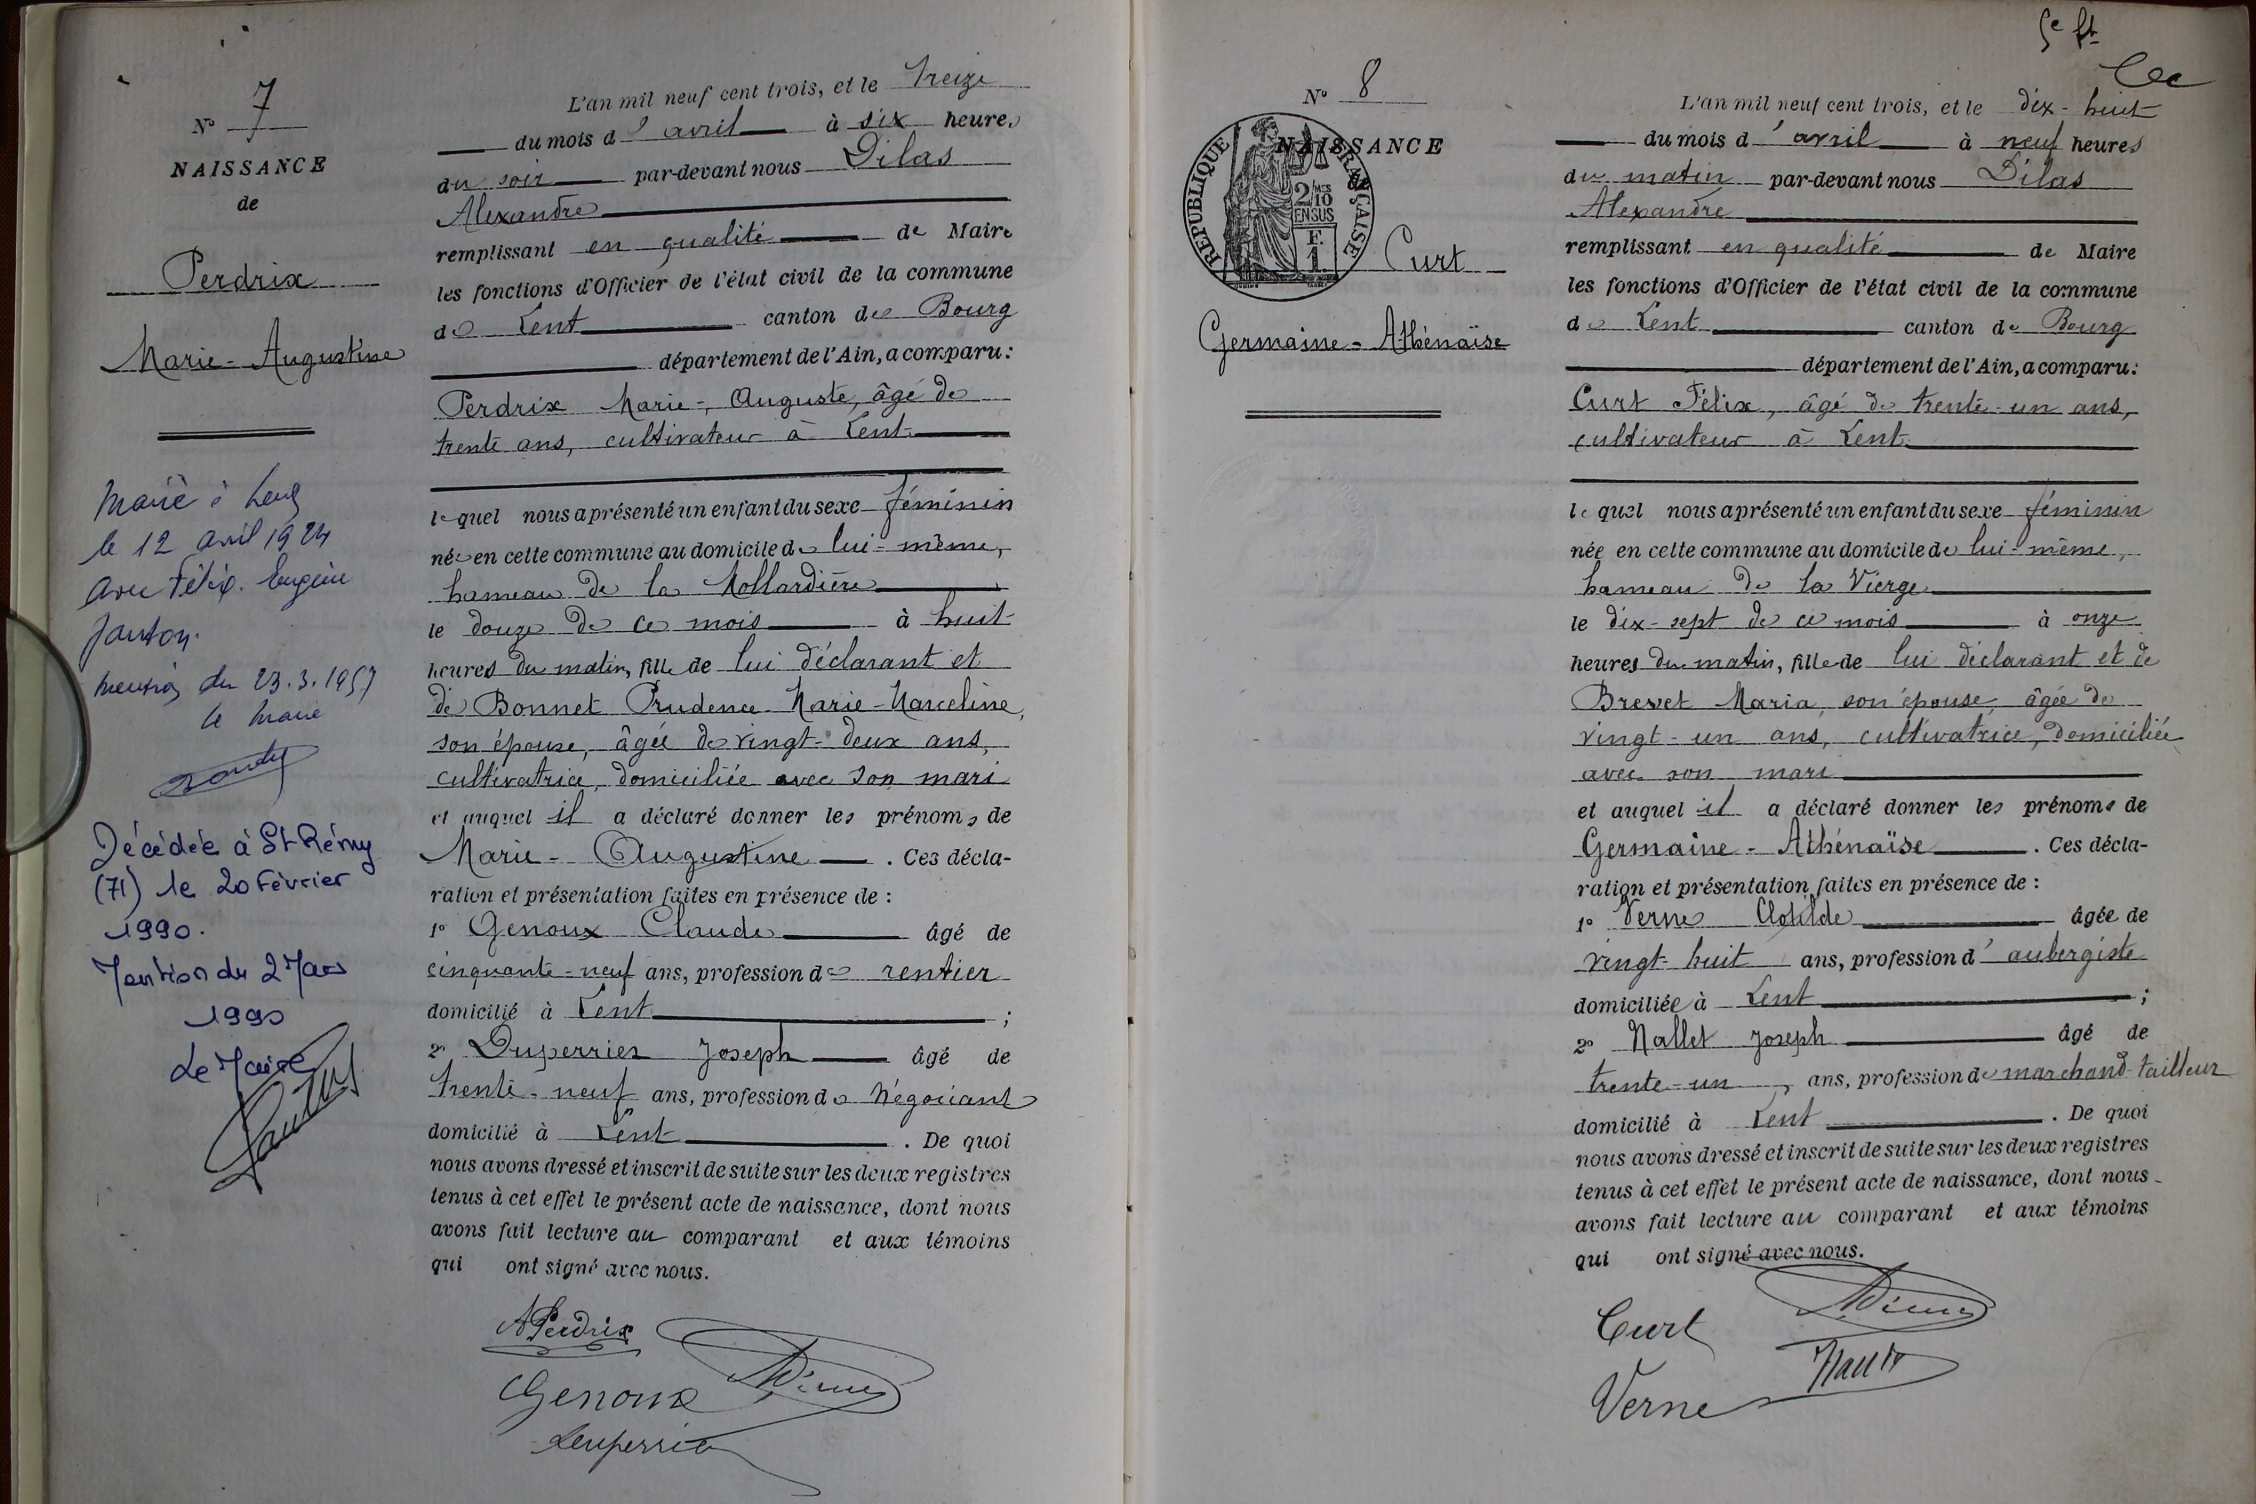 N° 7
NAISSANCE
de
Perdrix
Marie-Augustine
Marié à Lent
le 12 avril 1924
avec Félix Eugène
Janton.
mention du 23.3.1957
le Maire
Décédée à St Rémy
(71) le 20 Février
1990.
Mention du 2 Mars
1990
Le Maire
L'an mil neuf cent trois, et le treize
du mois d'avril à six heures
du soir par-devant nous Dilas
Alexandre
remplissant en qualité de Maire
les fonctions d'Officier de l'état civil de la commune
de Lent canton de Bourg
département de l'Ain, a comparu:
Perdrix Marie-Auguste, âgé de
trente ans, cultivateur à Lent
lequel nous a présenté un enfant du sexe féminin
née en cette commune au domicile de lui-même,
hameau de la Mollardière
le douze de ce mois à huit
heures du matin, fille de lui déclarant et
de Bonnet Prudence-Marie-Marceline,
son épouse, âgée de vingt-deux ans,
cultivatrice, domiciliée avec son mari
et auquel il a déclaré donner les prénoms de
Marie-Augustine. Ces décla-
ration et présentation faites en présence de:
1° Genoux Claude âgé de
cinquante-neuf ans, profession de rentier
domicilié à Lent;
2° Duperrier Joseph âgé de
trente-neuf ans, profession de Négociant
domicilié à Lent. De quoi
nous avons dressé et inscrit de suite sur les deux registres
tenus à cet effet le présent acte de naissance, dont nous
avons fait lecture au comparant et aux témoins
qui ont signé avec nous.
A Perdrix
Genoux
Duperrier
N° 8
NAISSANCE
de
RÉPUBLIQUE FRANÇAISE
2/10 EN SUS
F. 1
Curt
Germaine-Athénaïse
L'an mil neuf cent trois, et le dix-huit
du mois d'avril à neuf heures
du matin par-devant nous Dilas
Alexandre
remplissant en qualité de Maire
les fonctions d'Officier de l'état civil de la commune
de Lent canton de Bourg
département de l'Ain, a comparu:
Curt Félix, âgé de trente-un ans,
cultivateur à Lent
lequel nous a présenté un enfant du sexe féminin
née en cette commune au domicile de lui-même,
hameau de la Vierge
le dix-sept de ce mois à onze
heures du matin, fille de lui déclarant et de
Brevet Maria, son épouse, âgée de
vingt-un ans, cultivatrice, domiciliée
avec son mari
et auquel il a déclaré donner les prénoms de
Germaine-Athénaïse. Ces décla-
ration et présentation faites en présence de:
1° Verne Clotilde âgée de
vingt-huit ans, profession d'aubergiste
domiciliée à Lent;
2° Mallet Joseph âgé de
trente-un ans, profession de marchand-tailleur
domicilié à Lent. De quoi
nous avons dressé et inscrit de suite sur les deux registres
tenus à cet effet le présent acte de naissance, dont nous
avons fait lecture au comparant et aux témoins
qui ont signé avec nous.
Curt
Verne